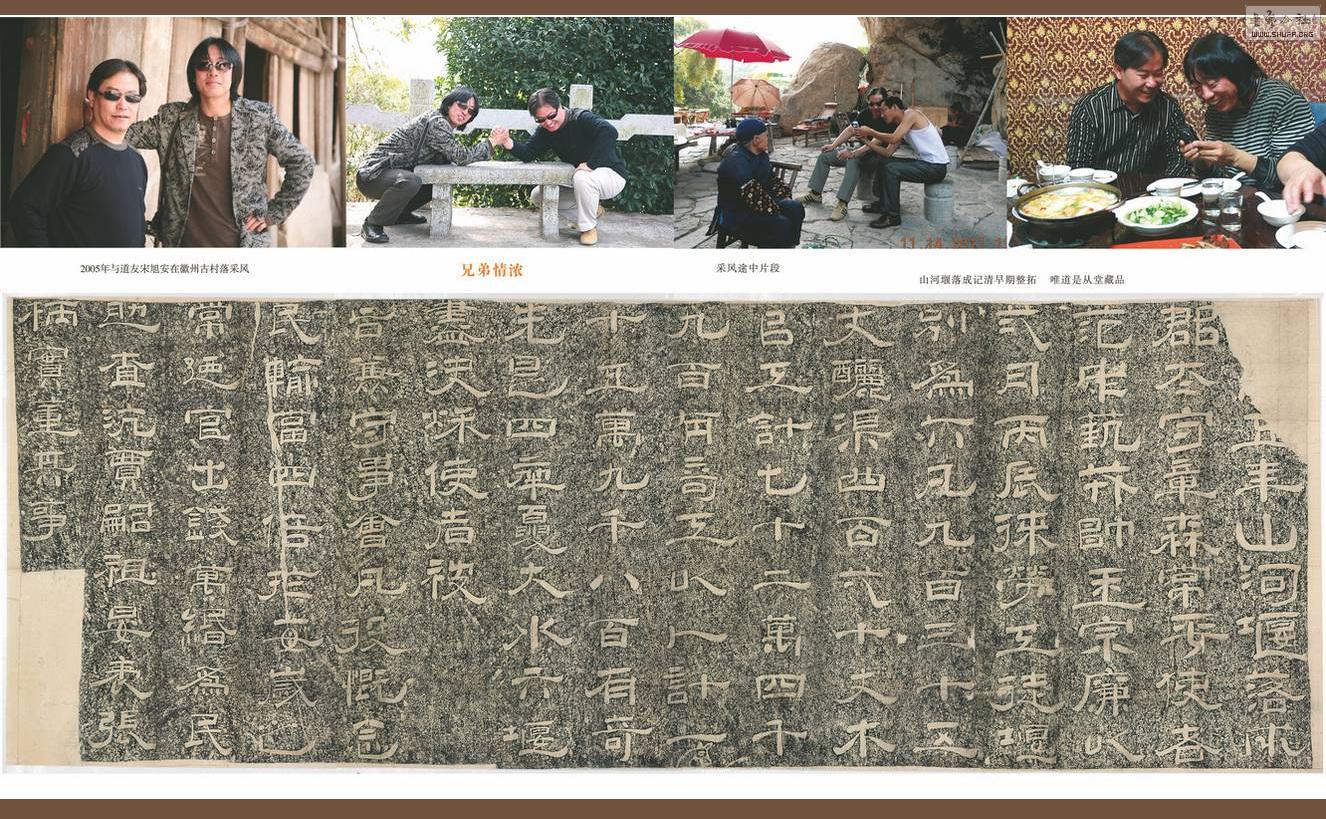 WWW.SHUFA.ORG
2005年与道友宋旭安在徽州古村落采风
兄弟情浓
采风途中片段
11 14 2011 1
山河堰落成记清早期整拓 唯道是从堂藏品
五年山河堰落成
郡太守章森常平使者
范中埶帥王宗廉以
弍月丙辰徠勞工徒堰
別為六凡九百三十五
丈釃渠四百弍十丈木
以工計七十二萬四千
九百有奇工以人計一
十五萬九千八百有奇
先是四年夏大水六堰
盡決秋使者被
旨兼守事會凡役慨念
民輸當四倍於每歲也
常延官出錢萬緡為民
助查沆賈嗣祖晏袤張
柄實董其事